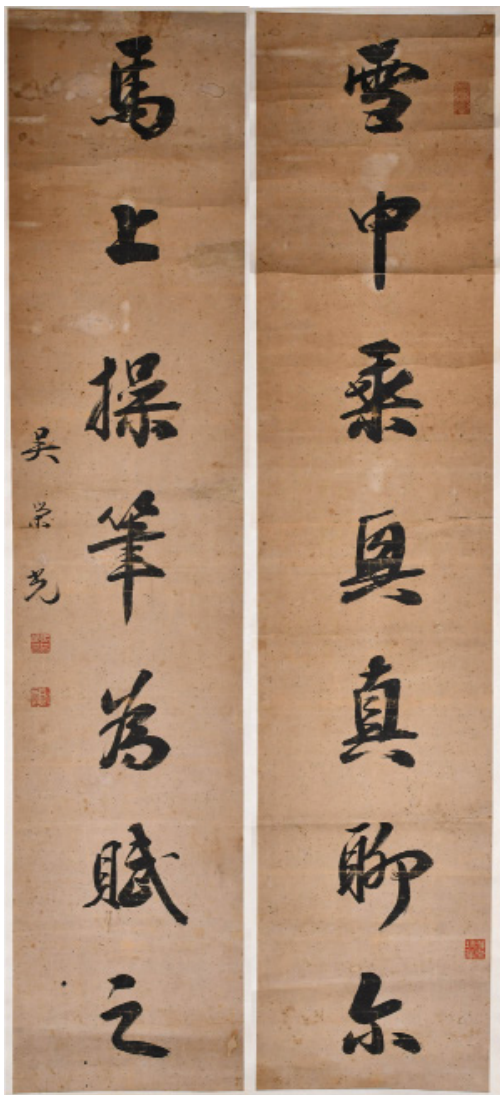 雪中乘興真聊尔
馬上操筆為賦之
吳榮光